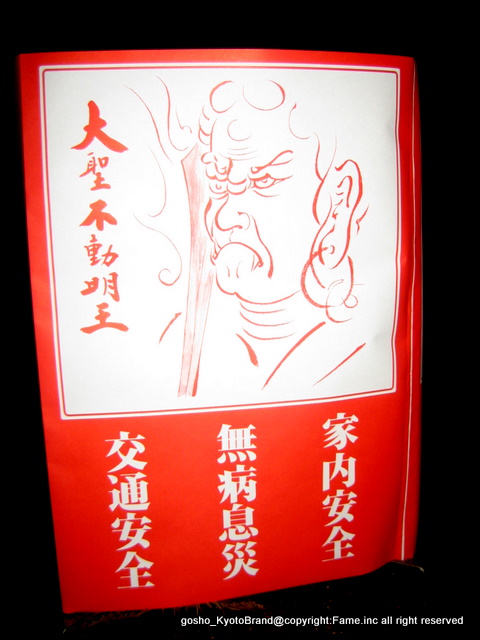 大聖不動明王
家内安全
無病息災
交通安全
gosho_KyotoBrand@copyright:Fame.inc all right reserved